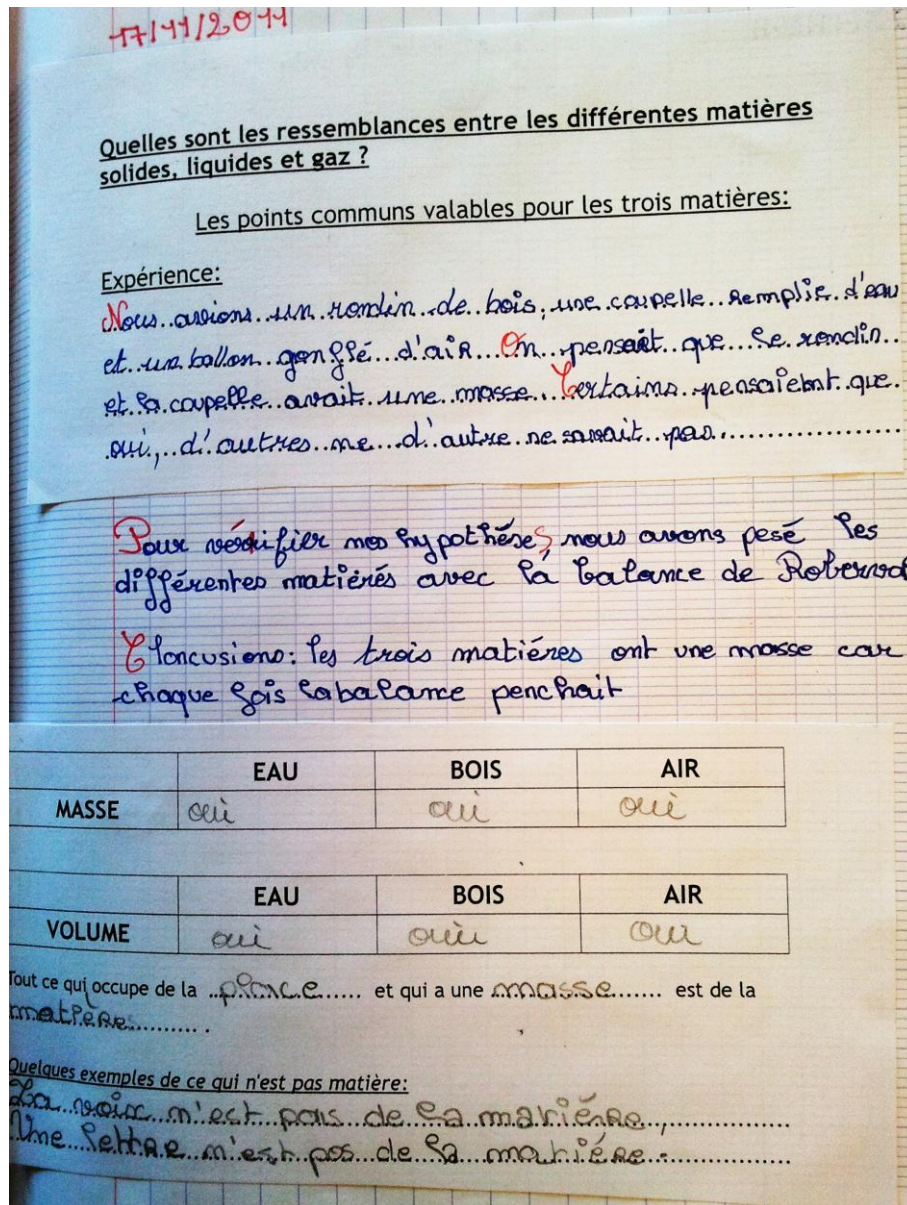 17/11/2011
Quelles sont les ressemblances entre les différentes matières
solides, liquides et gaz ?
Les points communs valable pour les trois matières:
Expérience:
Nous avions un rondin de bois, une coupelle remplie d'eau
et un ballon gonflé d'air. On pensait que le rondin
et la coupelle avait une masse. Certains pensaient que
oui, d'autres ne d'autre ne savait pas
Pour vérifier nos hypothèses, nous avons pesé les
différentes matières avec la balance de
Cloncusions: les trois matiéres ont une masse car
chaque fois labalance penchait
EAU BOIS AIR
MASSE oui oui oui
EAU BOIS AIR
VOLUME oui ouii oui
Tout ce qui occupe de la place et qui a une masse est de la
matière.
Quelques exemples de ce qui n'est pas matière:
La voix n'est pas de la mariére,
Une lettre n'est pas de la matiére.